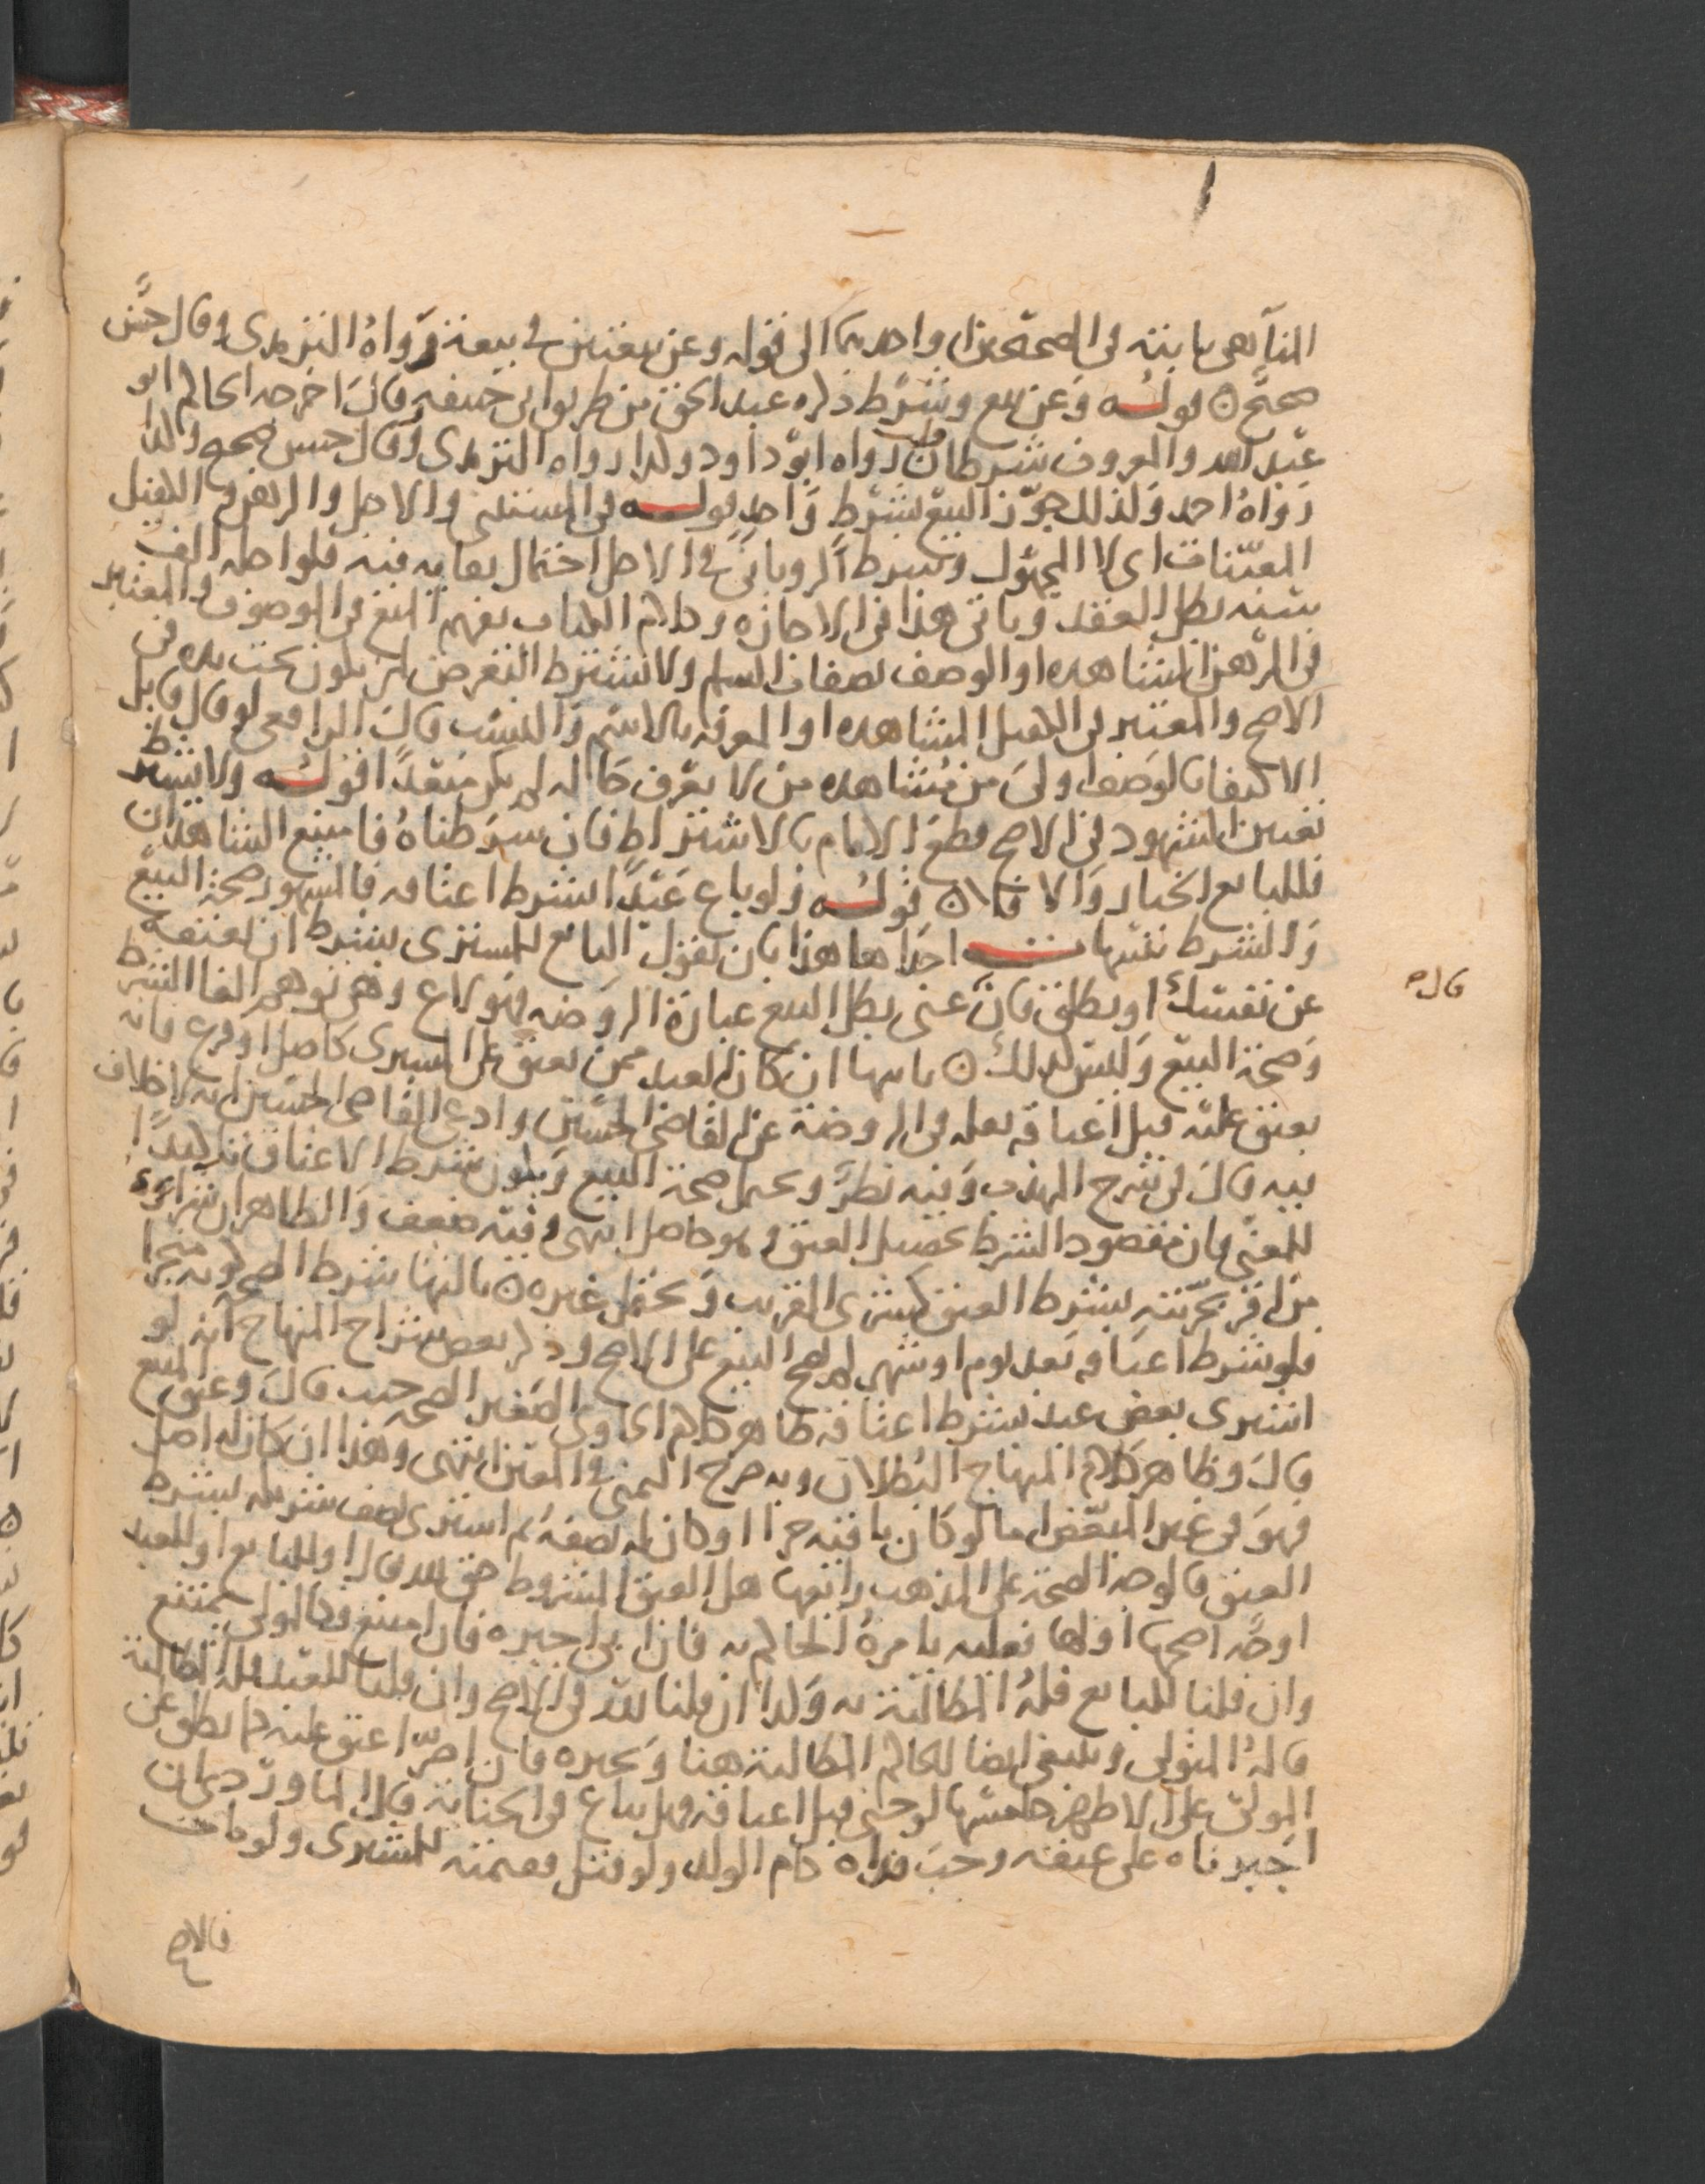 الناهى ثابتة فى الصحيحين واحدهما الى قوله وعن بيعتين فى بيعة رواه الترمذى وقال حسن
صحيح ٥ قوله وعن بيع وشرط ذكره عبد الحق من طريق ابى حنيفه وقال اخرجه الحاكم ابو
عبد الله والمعروف شرطان رواه ابو داود وكذا رواه الترمذى وقال حسن صحيح وكذا
رواه احمد ولذلك جوز البيع بشرط واحد قوله فى المستثنى والاجل والرهن والكفيل
المعينات اى لا المجهول وشرط الرويانى فى الاجل احتمال بقائه فيه فلو اجله الف
سنه بطل العقد وياتى هذا فى الاجازه وكلام الكتاب يفهم المنع فى الموصوف والمعتبر
فى الرهن المشاهده او الوصف بصفات السلم ولا تشترط التعرض لمن يكون تحت يده فى
الاصح والمعتبر فى الكفيل المشاهده او المعرفه بالاسم والنسب قال الرافعى لو قال قايل
الاكتفا بالوصف اولى من مشاهده من لا يعرف حاله لم يكن مبعدا قوله ولا يشترط
تعيين الشهود فى الاصح وقطع الامام بالاشتراط فان شرطناه فامتنع الشاهدان
فللبايع الخيار والا فلا ٥ قوله ولو باع عبدا بشرط اعتاقه فالمشهور صحة البيع
والشرط تنبيهات احداها هذا بان يقول البايع للمشترى بشرط ان تعتقه
عن نفسك او يطلق فان عنى بطل البيع عبارة الروضه فهو لاغ وهى توهم الغا الشرط
وصحة البيع وليس كذلك ٥ ثانيها ان كان العبد ممن يعتق على المشترى كاصل او فرع فانه
يعتق عليه قبل اعتاقه نعله فى الروضة عن القاضى الحسين وادعى القاضى الحسين انه لا خلاف
فيه قال فى شرح المهذب وفيه نظر ويحتمل صحة البيع ويكون شرط الاعتاق توكيدا
للمعنى فان مقصود الشرط تحصيل العتق وهو حاصل انتهى وفيه ضعف والظاهر ان شراء
من اقر بحريته بشرط العتق كشرى القريب ويحتمل غيره ٥ ثالثها شرط الصحه كونه منجزا
فلو شرط اعتاقه بعد يوم او شهر لم يصح البيع على الاصح وذكر بعض شراح المنهاج انه لو
اشترى بعض عبد بشرط اعتاقه ظاهر كلام الحاوى الصغير الصحه قال وعنق المبيع
قال وظاهر كلام المنهاج البطلان وبه صرح اليمنى فى المعين انتهى وهذا ان كان له اصل
فهو فى غير البعض اما لو كان باقيه حرا او كان له نصفه ثم اشترى نصف شريكه بشرط
العتق فالوجه الصحة على المذهب رابعها هل العتق المشروط حق لله تعالى او للبايع او للعبد
اوجه اصحها اولها فعليه يامره الحاكم به فان ابى اجبره فان امتنع فكالمولى يمتنع
وان قلنا للبايع فله المطالبة به وكذا ان قلنا لله فى الاصح وان قلنا للعبد فله المطالبة
قاله المتولى وينبغى ايضا للحاكم المطالبة هنا ويجبره فان اصر اعتق عليه كما يطلق عن
المولى على الاظهر خامسها لو جنى قبل اعتاقه وهل يباع فى الجناية قال الماوردى ان
اجبرناه على عتقه وجب فداه كام الولد ولو قتل فقيمته للمشترى ولو مات
فالاصح
قال م